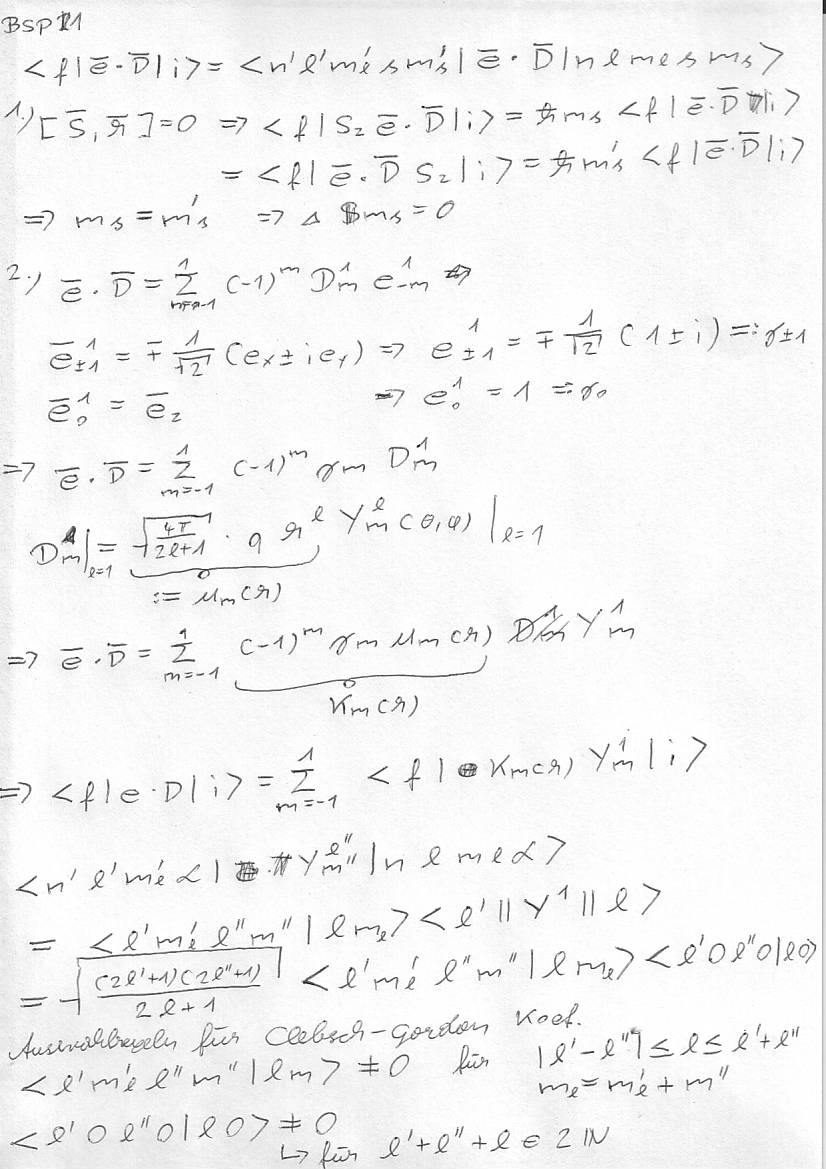 BSP 11
<f|e̅·D̅|i> = <n'l'mₗ's mₛ'|e̅·D̅|n l mₗ s mₛ>
1.) [S̅, r̅]=0 => <f|S_z e̅·D̅|i> = ħmₛ <f|e̅·D̅|i>
= <f|e̅·D̅ S_z|i> = ħmₛ' <f|e̅·D̅|i>
=> mₛ = mₛ' => Δ mₛ = 0
2.) e̅·D̅ = Σ_{m=-1}^{1} (-1)^m D_m^1 e_{-m}^1 =>
e̅_{±1}^1 = ∓ 1/√2 (e_x ± i e_y) => e_{±1}^1 = ∓ 1/√2 (1 ± i) =: γ_{±1}
e̅_0^1 = e̅_z => e_0^1 = 1 =: γ_0
=> e̅·D̅ = Σ_{m=-1}^{1} (-1)^m γ_m D_m^1
D_m^l|_{l=1} = √(4π/(2l+1)) · q r^l Y_m^l(θ,φ)|_{l=1}
:= μ_m(r)
=> e̅·D̅ = Σ_{m=-1}^{1} (-1)^m γ_m μ_m(r) Y_m^1
K_m(r)
=> <f|e·D|i> = Σ_{m=-1}^{1} <f| K_m(r) Y_m^1|i>
<n' l' mₗ' α| Y_{m''}^{l''} |n l mₗ α>
= <l' mₗ' l'' m''|l mₗ> <l'||Y^1||l>
= √((2l'+1)(2l''+1)/(2l+1)) <l' mₗ' l'' m''|l mₗ> <l' 0 l'' 0|l 0>
Auswahlregeln für Clebsch-Gordon Koef.
<l' mₗ' l'' m''|l m> ≠ 0 für |l'-l''| ≤ l ≤ l'+l''
mₗ = mₗ' + m''
<l' 0 l'' 0|l 0> ≠ 0
↳ für l'+l''+l ∈ 2ℕ